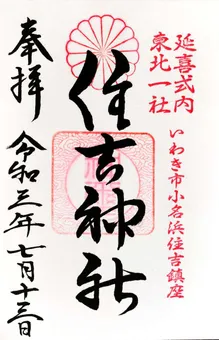 延喜式内
東北一社
いわき市小名浜住吉鎮座
住吉神社
奉拝
令和三年七月十三日